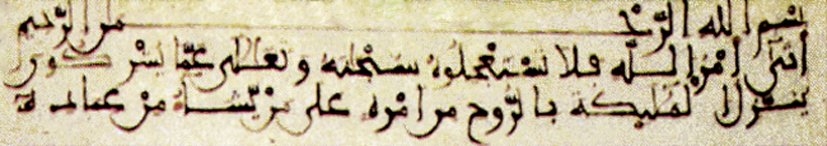 بسم الله الرحمن الرحيم
أتى أمر الله فلا تستعجلوه سبحنه وتعلى عما يشركون
ينزل الملئكة بالروح من أمره على من يشاء من عباده